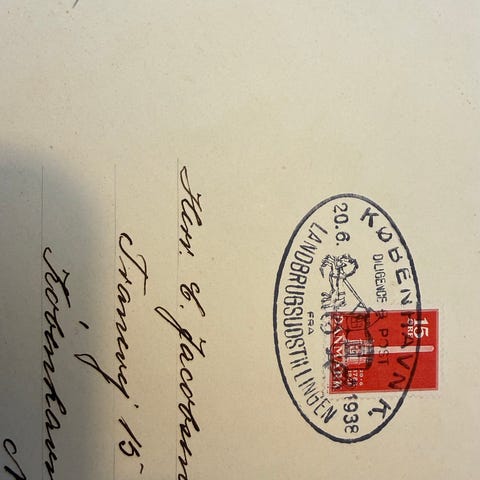 KØBENHAVN K
DILIGENCE & POST
20.6. 1938
FRA
LANDBRUGSUDSTILLINGEN
15
ØRE
DANMARK
Hrr. C. Jacobsen
15
København